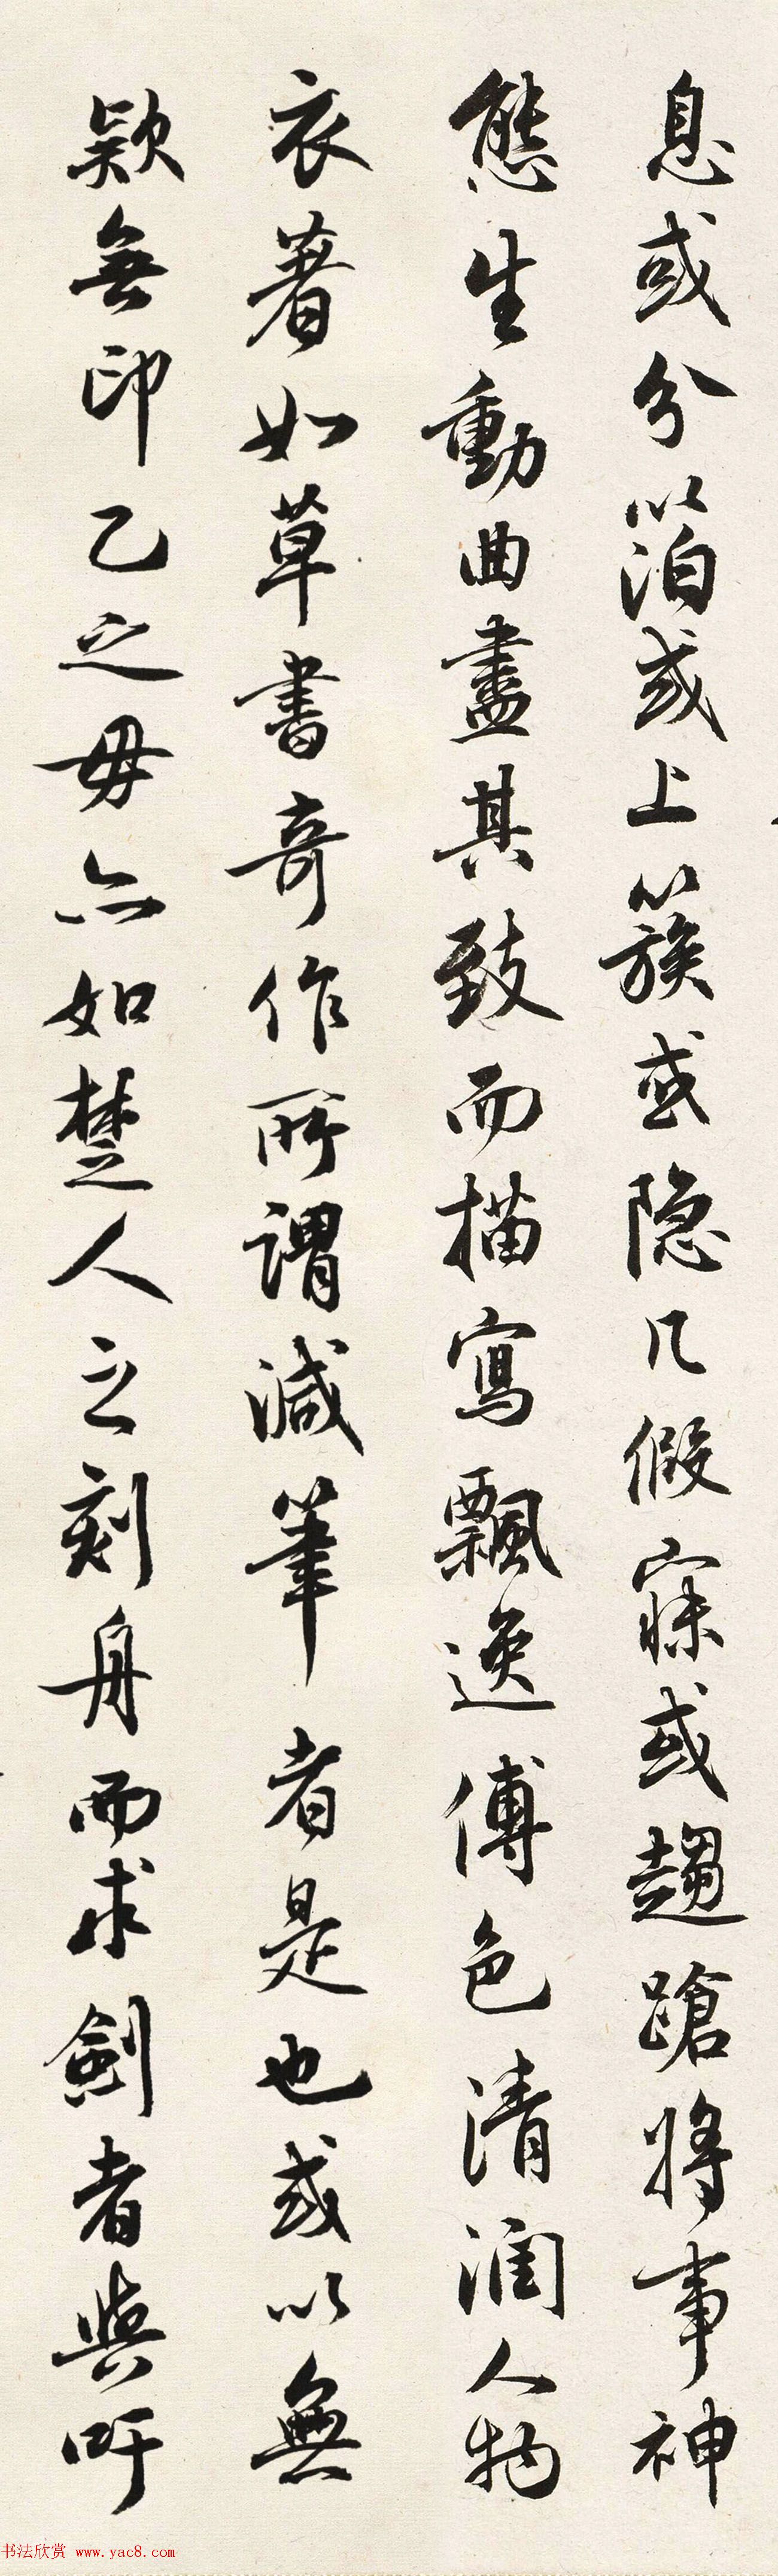 息或分箔或上簇或隐几假寐或趨蹌將事神
態生動曲盡其致而描寫飄逸傅色清潤人物
衣著如草書奇作所謂減筆者是也或以無
款無印乙之毋亦如楚人之刻舟而求劍者與吁
书法欣赏 www.yac8.com